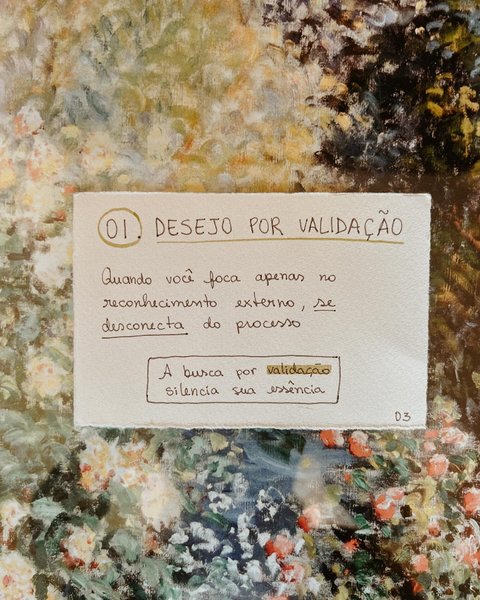 01. DESEJO POR VALIDAÇÃO
Quando você foca apenas no
reconhecimento externo, se
desconecta do processo
A busca por validação
silencia sua essência
03